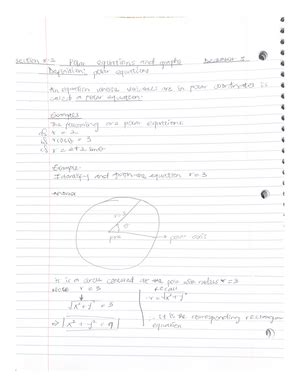 Section 8-2 Polar equations and graphs
Definition: polar equations
An equation whose variables are in polar coordinates is
called a polar equation.
Example
The following are polar equations
a) r = 2
b) r cos θ = 3
c) r = 2 + 2 sin θ
Example
Identify and graph the equation r = 3
Answer
r = 3
θ
pole
polar axis
It is a circle centered at the pole with radius r = 3
Note r = 3
Recall
r = √x² + y²
√x² + y² = 3
⇒ x² + y² = 9
∴ It is the corresponding rectangular
equation